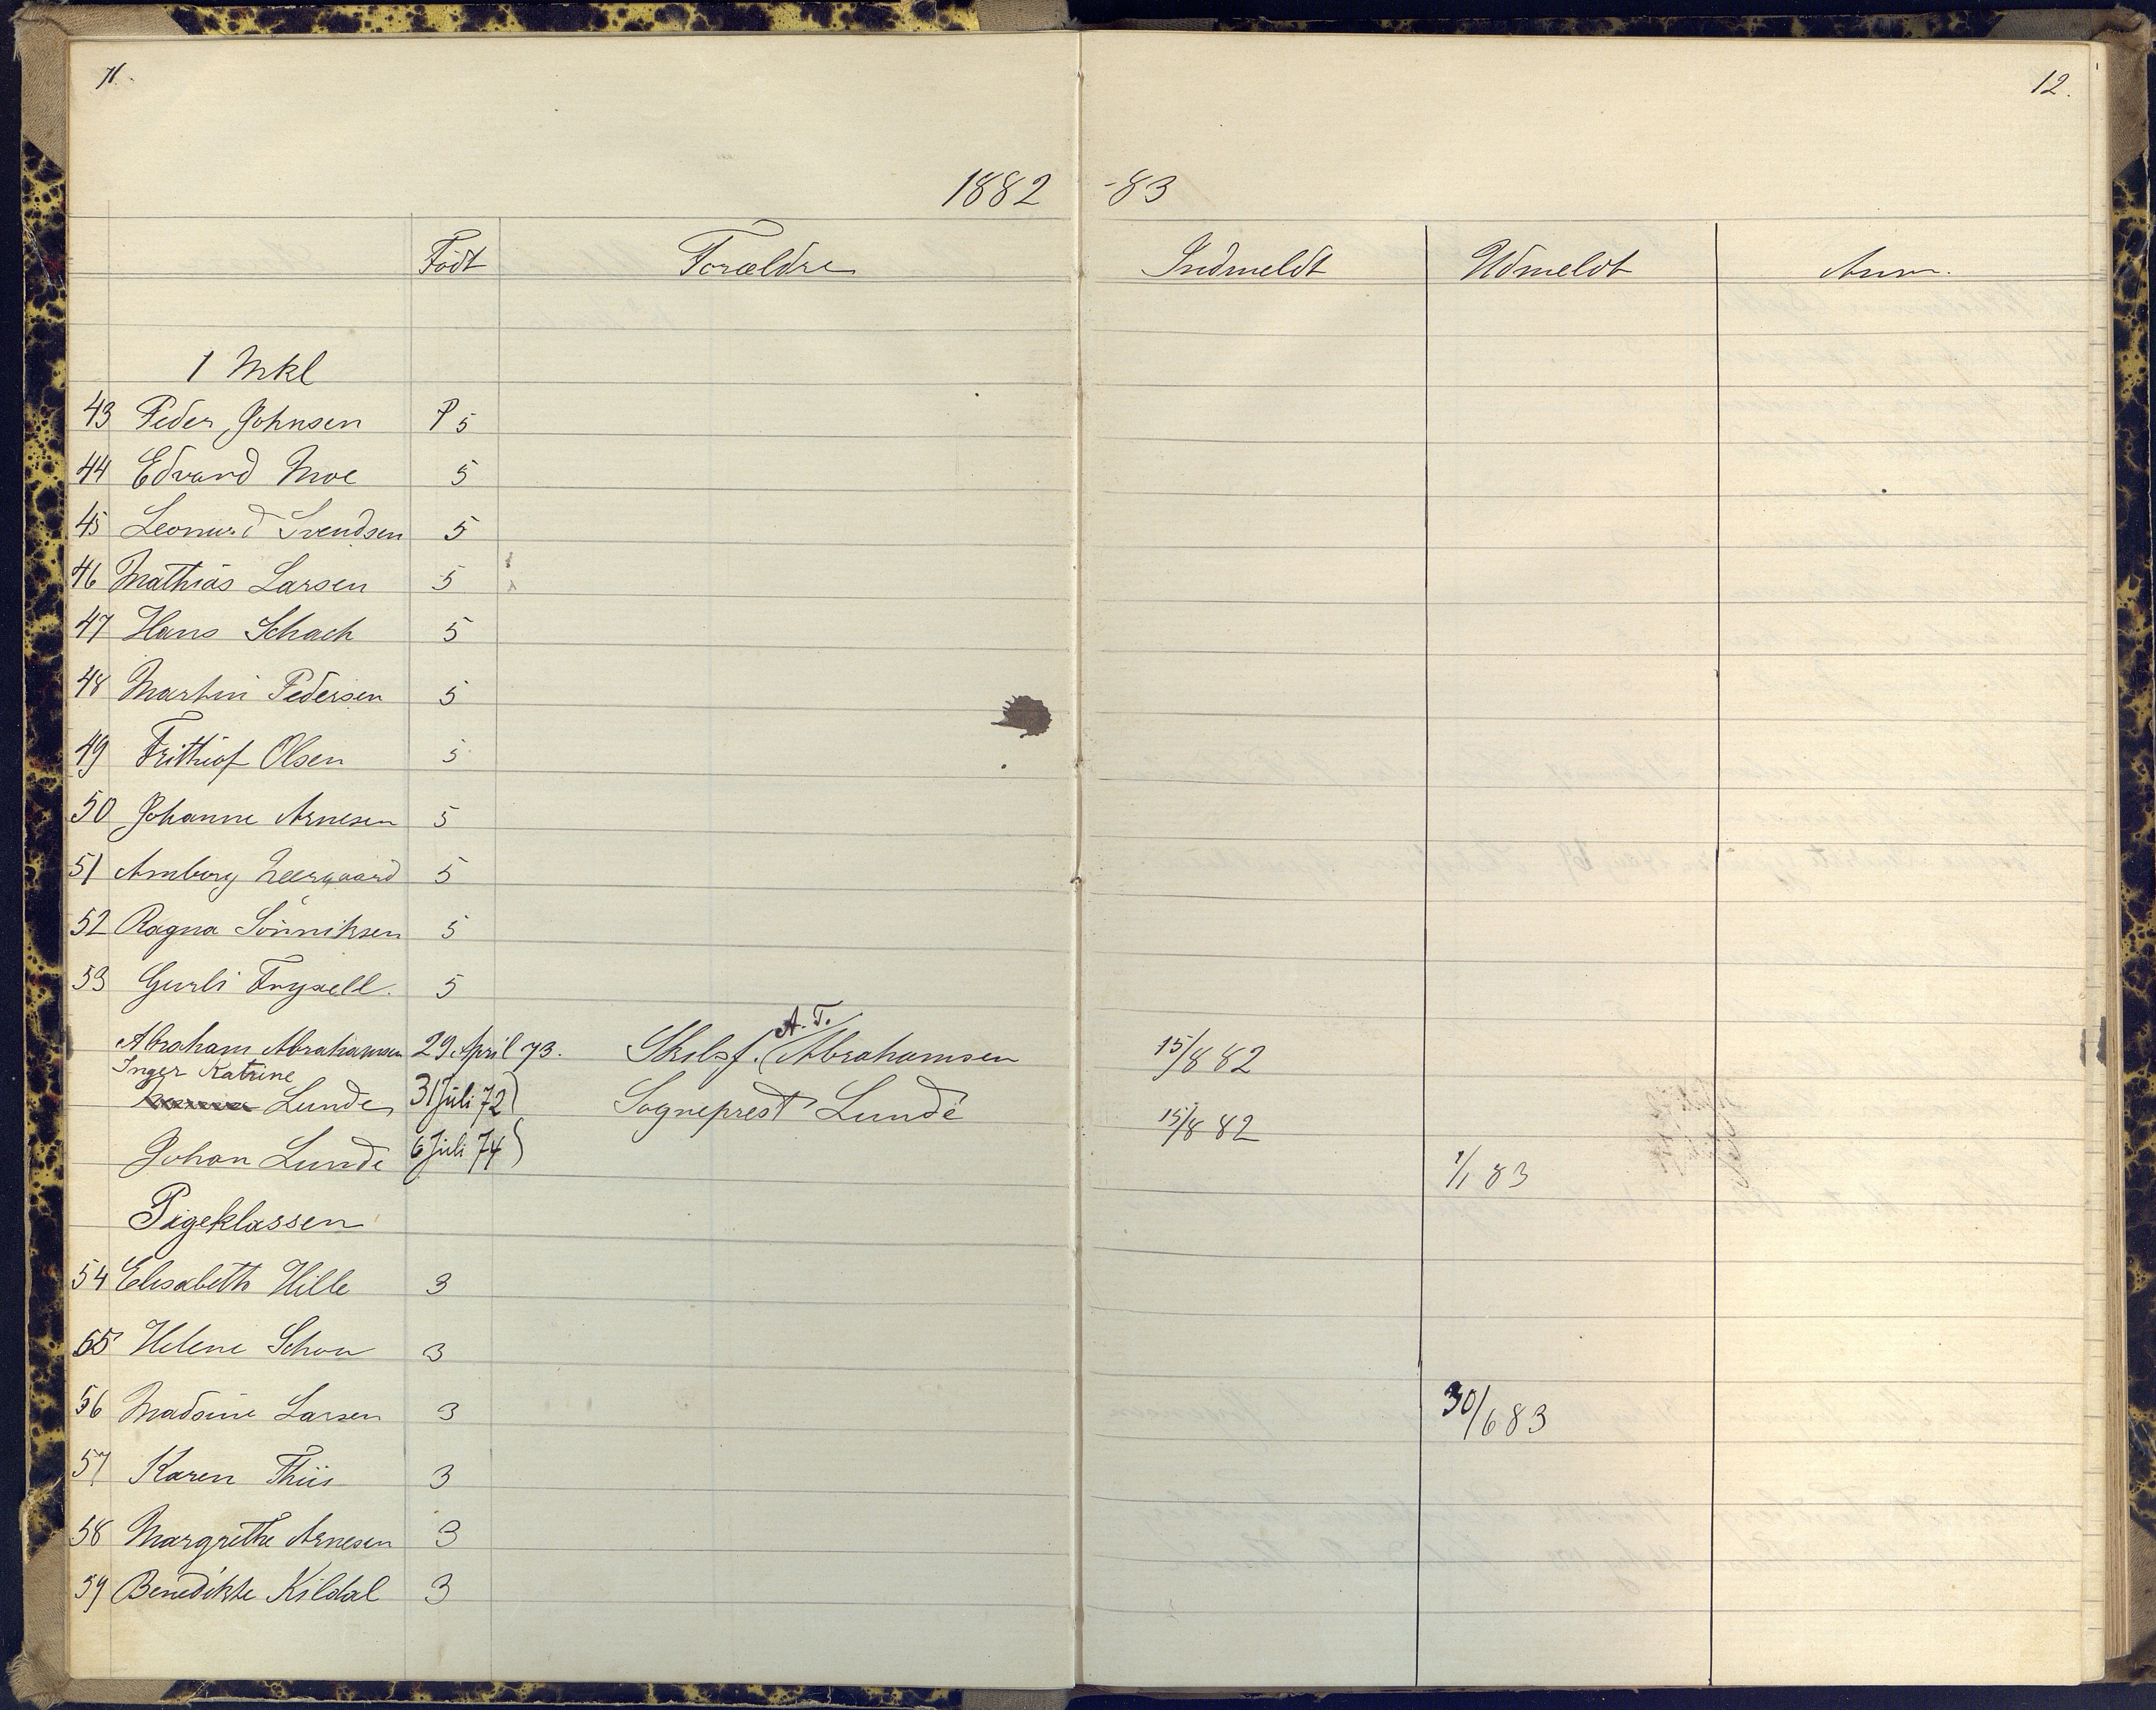 11.
12.
1882 -83
Födt Forældre Indmeldt Udmeldt Anm.
1 Mkl
43 Peder Johnsen P 5
44 Edvard Moe 5
45 Leonard Svendsen 5
46 Mathias Larsen 5
47 Hans Schach 5
48 Martin Pedersen 5
49 Frithiof Olsen 5
50 Johanne Arnesen 5
51 Amborg Neergaard 5
52 Ragna Sönniksen 5
53 Gurli Fryxell. 5
A. T.
Abraham Abrahamsen 29 April 73. Skibsf. Abrahamsen 15/8 82
Inger Katrine
Lunde 31 Juli 72) Sogneprest Lunde 15/8 82
Johan Lunde 6 Juli 74) 1/1 83
Pigeklassen
54 Elisabeth Hille 3
55 Helene Schou 3
56 Madsine Larsen 3 30/6 83
57 Karen Thiis 3
58 Margrethe Arnesen 3
59 Benedikte Kildal 3